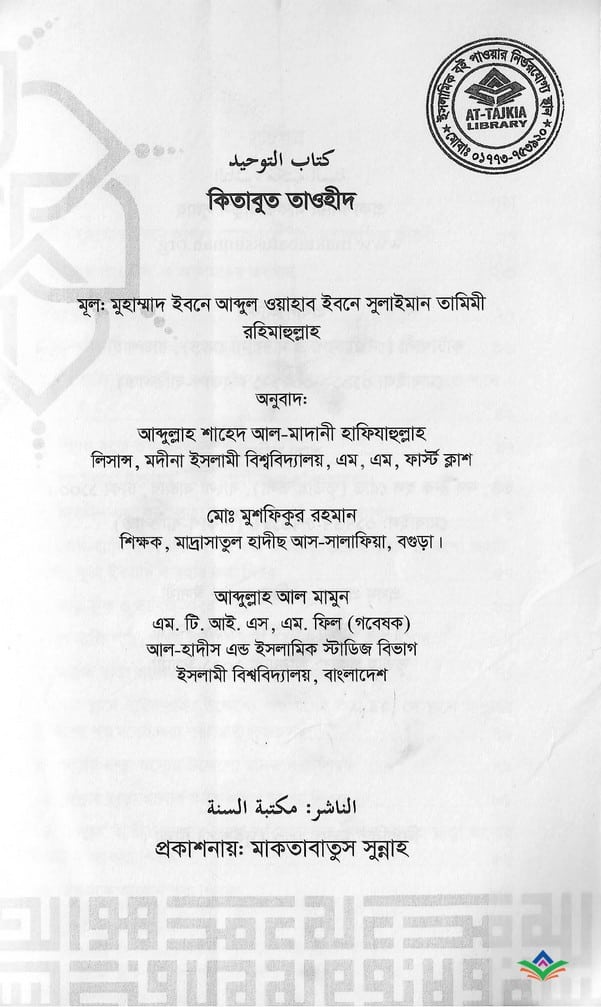 ইসলামিক বই পাওয়ার নির্ভরযোগ্য স্থান
AT-TAJKIA
LIBRARY
মোবাঃ ০১৭৭৩-৭৫৩৯২০
كتاب التوحيد
কিতাবুত তাওহীদ
মূল: মুহাম্মাদ ইবনে আব্দুল ওয়াহাব ইবনে সুলাইমান তামিমী
রহিমাহুল্লাহ
অনুবাদ:
আব্দুল্লাহ শাহেদ আল-মাদানী হাফিযাহুল্লাহ
লিসান্স, মদীনা ইসলামী বিশ্ববিদ্যালয়, এম, এম, ফার্স্ট ক্লাশ
মোঃ মুশফিকুর রহমান
শিক্ষক, মাদ্রাসাতুল হাদীছ আস-সালাফিয়া, বগুড়া।
আব্দুল্লাহ আল মামুন
এম. টি. আই. এস, এম. ফিল (গবেষক)
আল-হাদীস এন্ড ইসলামিক স্টাডিজ বিভাগ
ইসলামী বিশ্ববিদ্যালয়, বাংলাদেশ
الناشر: مكتبة السنة
প্রকাশনায়: মাকতাবাতুস সুন্নাহ